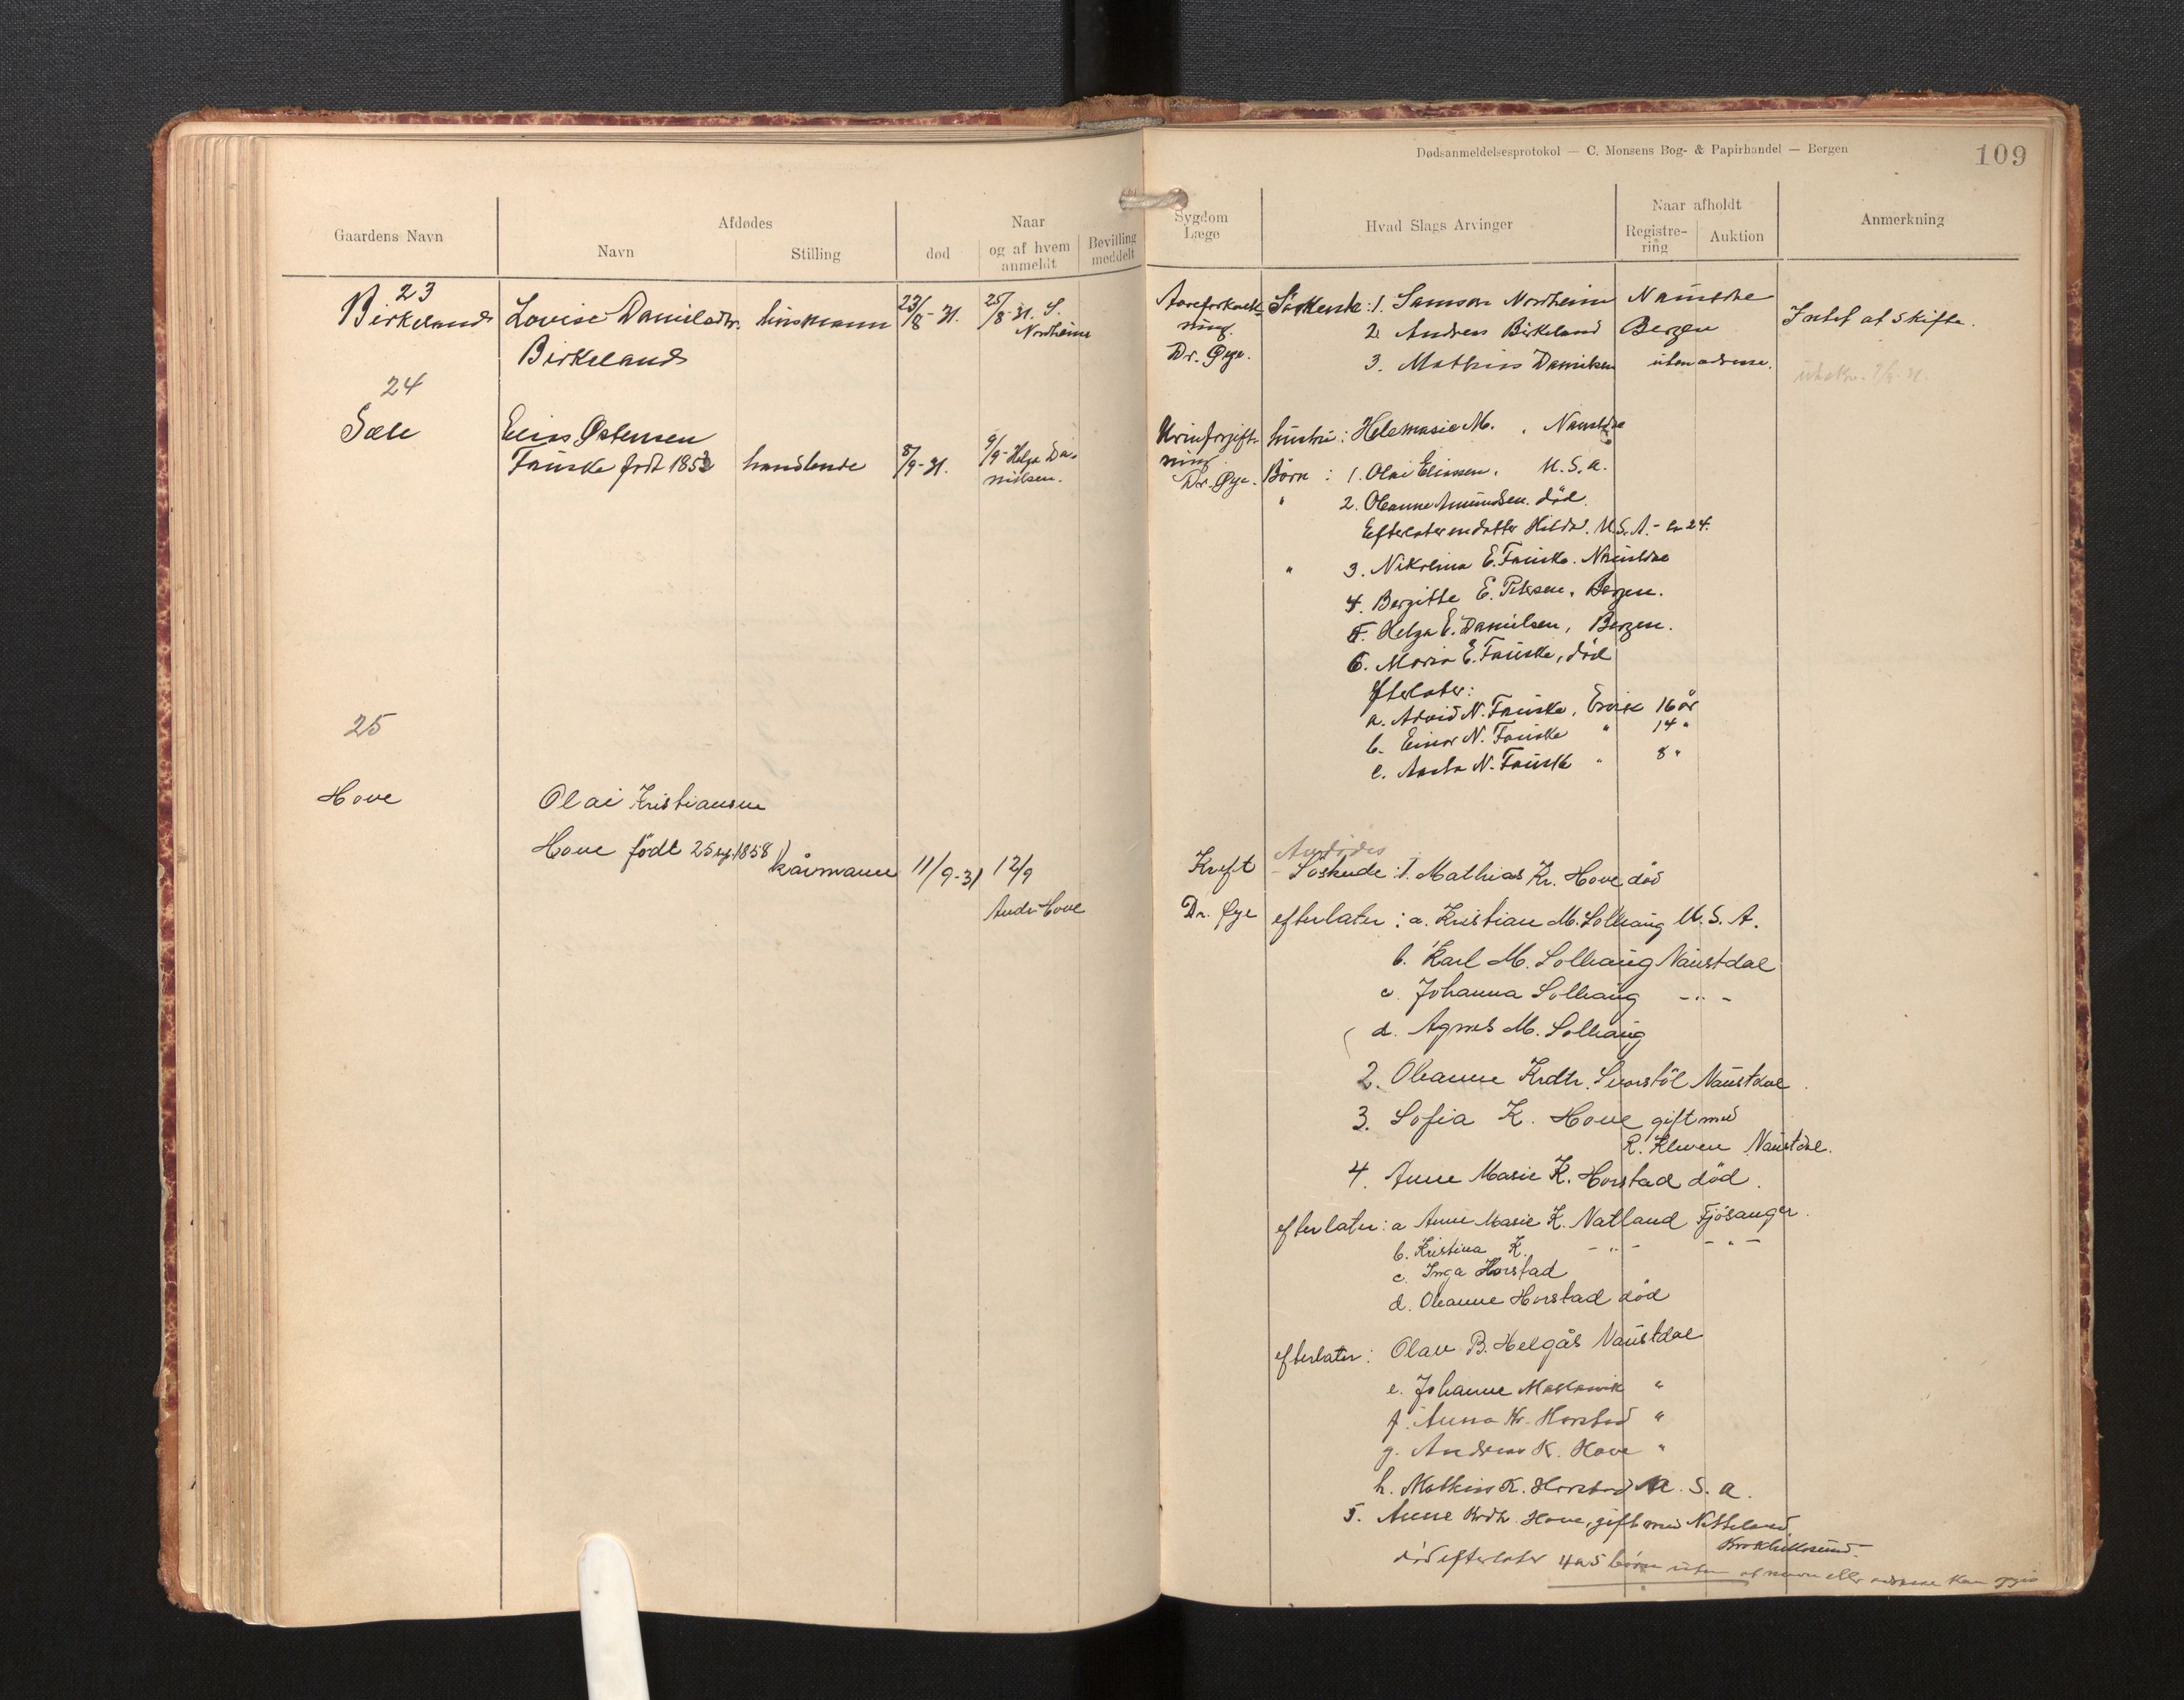 Dødsanmeldelsesprotokol — C. Monsens Bog- & Papirhandel — Bergen
109
Gaardens Navn
Afdødes
Navn
Stilling
død
Naar
og af hvem
anmeldt
Bevilling
meddelt
Sygdom
Læge
Hvad Slags Arvinger
Naar afholdt
Registre-
ring
Auktion
Anmerkning
23
Birkeland
Lovise Danielsdtr.
Birkeland
husmann
23/8-31.
25/8-31. S.
Nordheim
Aareforkalk-
ning.
Dr. Øye.
Söskende: 1. Samson Nordheim Naustdal
2. Andreas Birkeland Bergen
3. Mathias Danielsen uten adresse.
Intet at skifte.
24
Sæle
Elias Østensen
Fauske født 1853
handlende
8/9-31.
9/9- Helga Da-
nielsen.
Urinforgift-
ning.
Dr. Øye.
hustru: M. Naustdal
Börn: 1. Olai Eliassen. U.S.A.
" 2. Oleanne Amundsen. död.
Efterlater en datter Hilda. U.S.A. - 24.
" 3. Nikolina E. Fauske. Naustdal
4. Bergitte E. Petersen, Bergen.
5. Helga E. Danielsen, Bergen.
6. Maria E. Fauske, död
Efterlater:
a. Arvid N. Fauske, 16 år
b. Einar N. Fauske " 14 "
c. Aasta N. Fauske " 8 "
25
Hove
Olai Kristiansen
Hove födt 25 1858
kårmann
11/9-31
12/9
Andr. Hove
Kreft
Dr. Øye
Avdödes
Söskende: 1. Mathias Kr. Hove död
efterlater: a. Kristian M. Solhaug U.S.A.
b. Karl M. Solhaug Naustdal
c. Johanna Solhaug - " -
d. Agnes M. Solhaug
2. Oleanne Krdtr. Naustdal.
3. Sofia K. Hove gift med
R. Kleven Naustdal.
4. Anne Marie K. Horstad död.
efterlater: a Anne Marie K. Natland Fjösanger.
b. Kristina K. - " - - " -
c. Inga Horstad
d. Oleanne Horstad död
efterlater: Olav B. Helgås Naustdal
e. Johanne "
f. Anna Kr. Horstad "
g. Andreas K. Hove "
h. Mathias K. Horstad U.S.A.
5. Anne Krdtr. Hove, gift med
död efterlater 4 a 5 börn uten at navn eller adresse kan